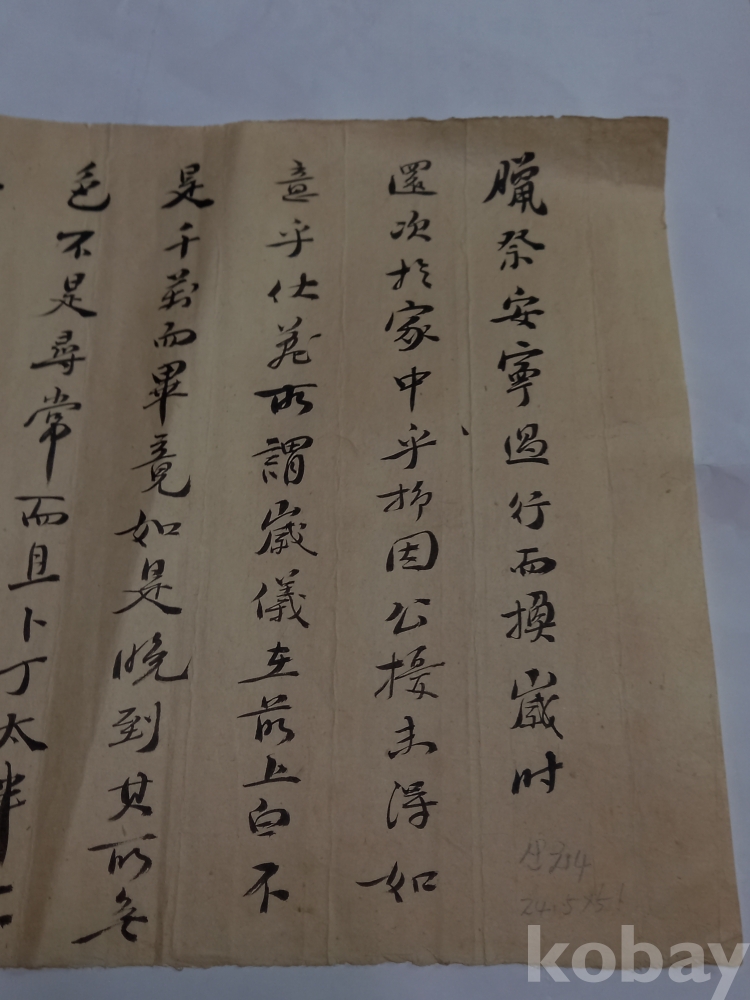 臘祭安寧過行而換歲時
還次於家中乎抑因公擾未得如
意乎伏菀所謂歲儀在前上白不
是千萬而畢竟如是晚到其所無
色不是尋常而且卜丁太
24.5
kobay